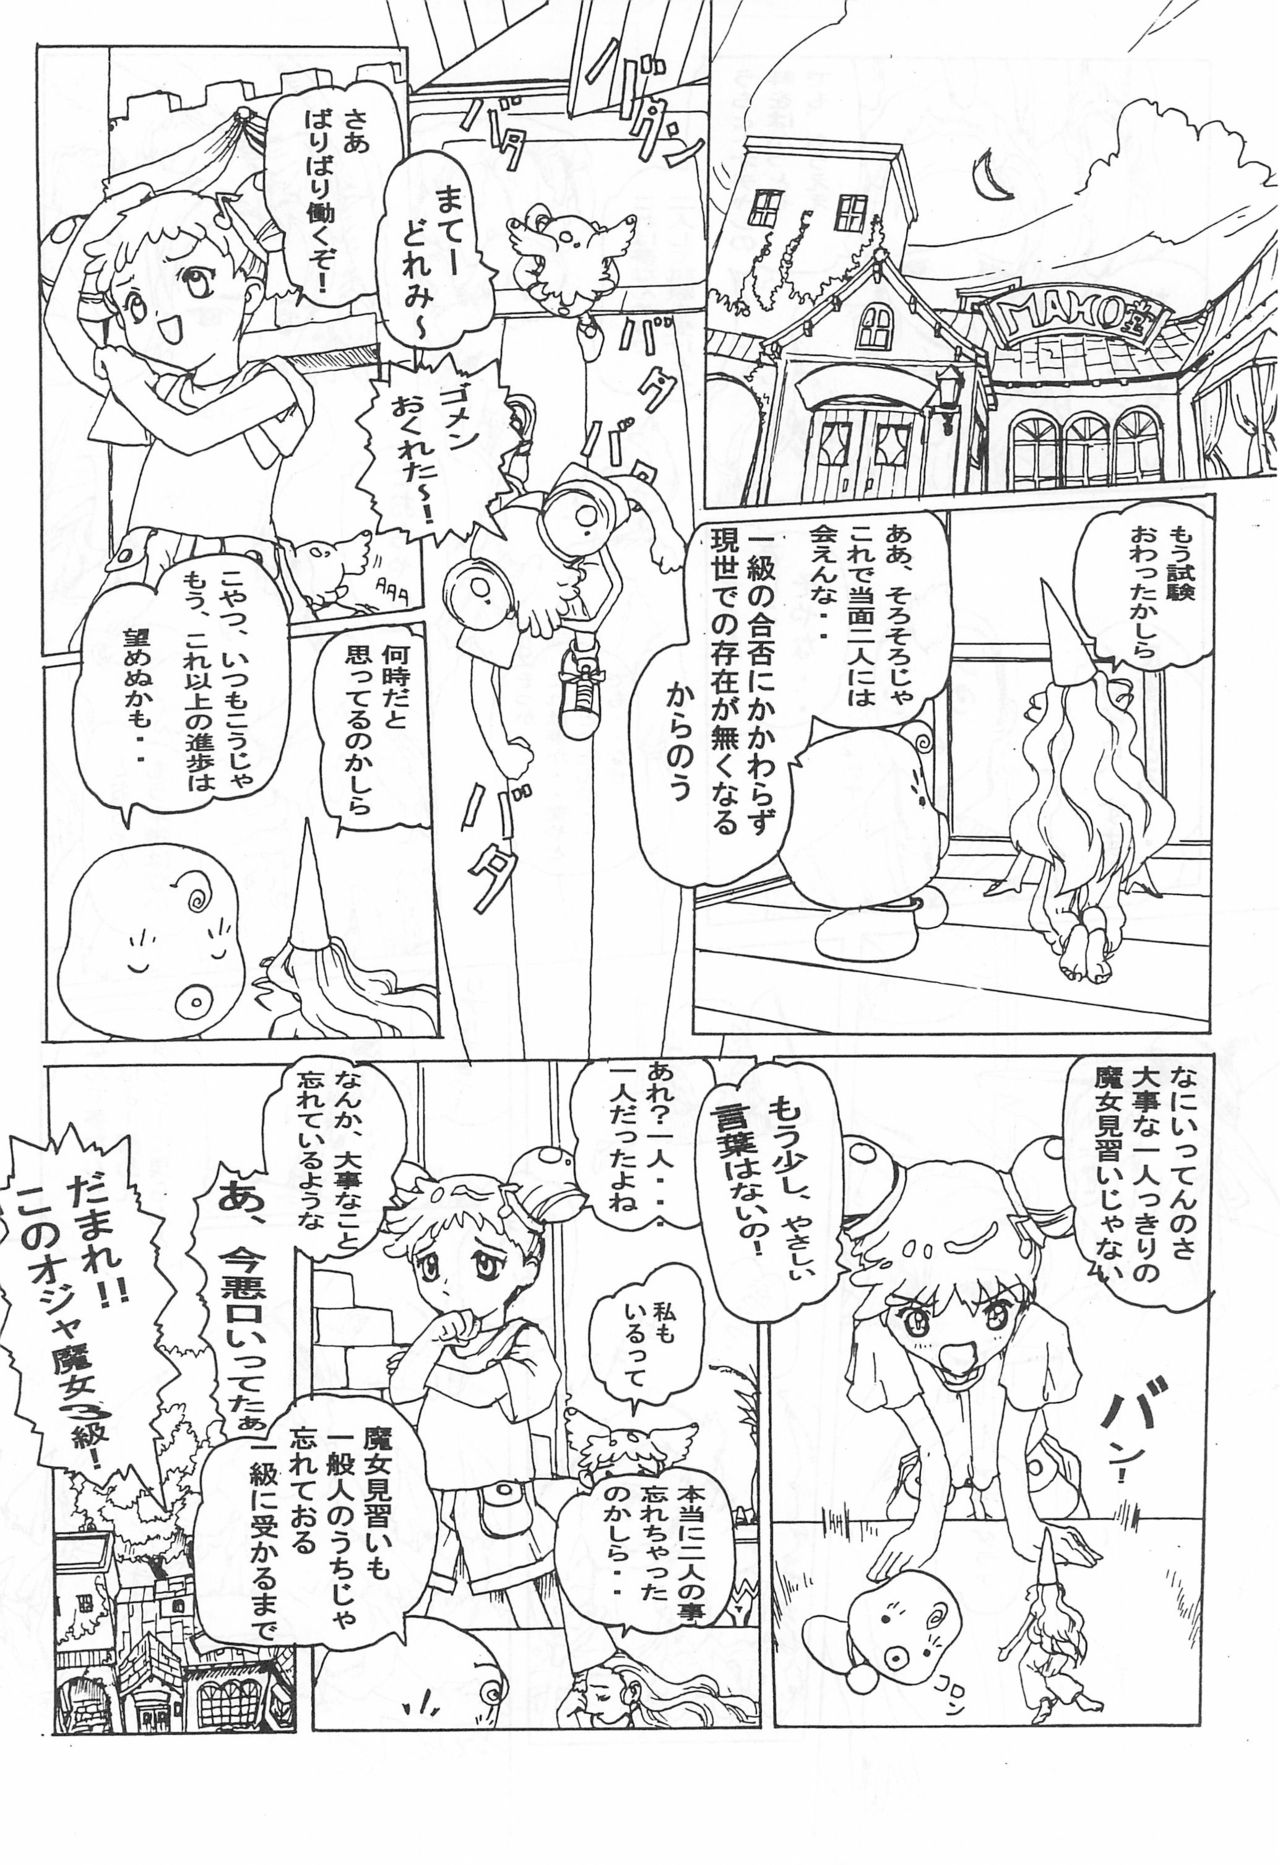 MAHO堂
もう試験
おわったかしら
ああ、そろそろじゃ
これで当面二人には
会えんな・・
一級の合否にかかわらず
現世での存在が無くなる
からのう
バ
バタン
バタ
バタ
バタ
バタ
まてー
どれみ～
ゴメン
おくれた～！
さあ
ばりばり働くぞ！
AAA
何時だと
思ってるのかしら
こやつ、いつもこうじゃ
もう、これ以上の進歩は
望めぬかも・・
なにいってんのさ
大事な一人っきりの
魔女見習いじゃない
もう少し、やさしい
言葉はないの！
バン！
コロン
あれ？一人・・・
一人だったよね
私も
いるって
なんか、大事なこと
忘れているような
本当に二人の事
忘れちゃった
のかしら・・
魔女見習いも
一般人のうちじゃ
忘れておる
一級に受かるまで
あ、今悪口いってたぁ
だまれ！！
このオジャ魔女3級！